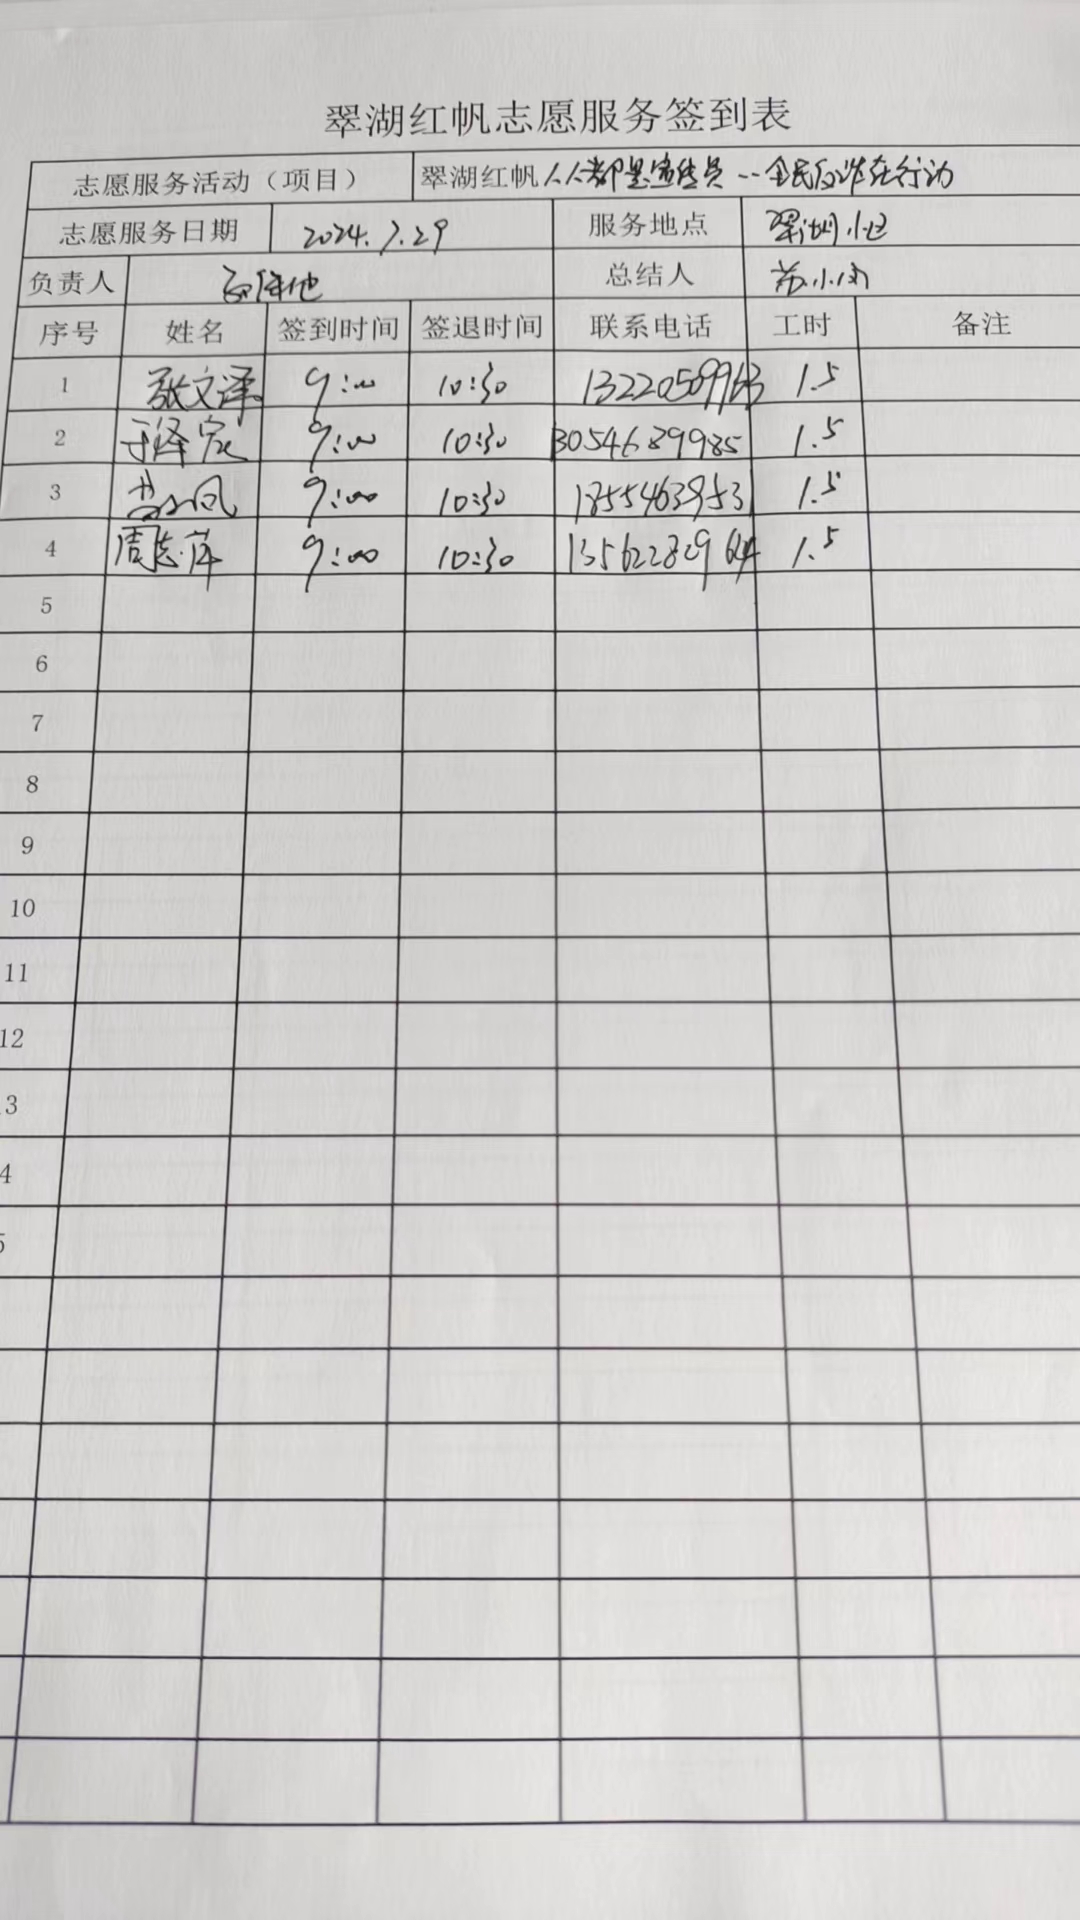 翠湖红帆志愿服务签到表
志愿服务活动（项目） 翠湖红帆人人都是宣传员--全民反诈在行动
志愿服务日期 2024.7.29 服务地点 翠湖小区
负责人 总结人
序号 姓名 签到时间 签退时间 联系电话 工时 备注
1 张文泽 9:00 10:30 13220509963 1.5
2 于泽宸 9:00 10:30 13054689985 1.5
3 9:00 10:30 1.5
4 周志萍 9:00 10:30 1.5
5
6
7
8
9
10
11
12
3
4
5